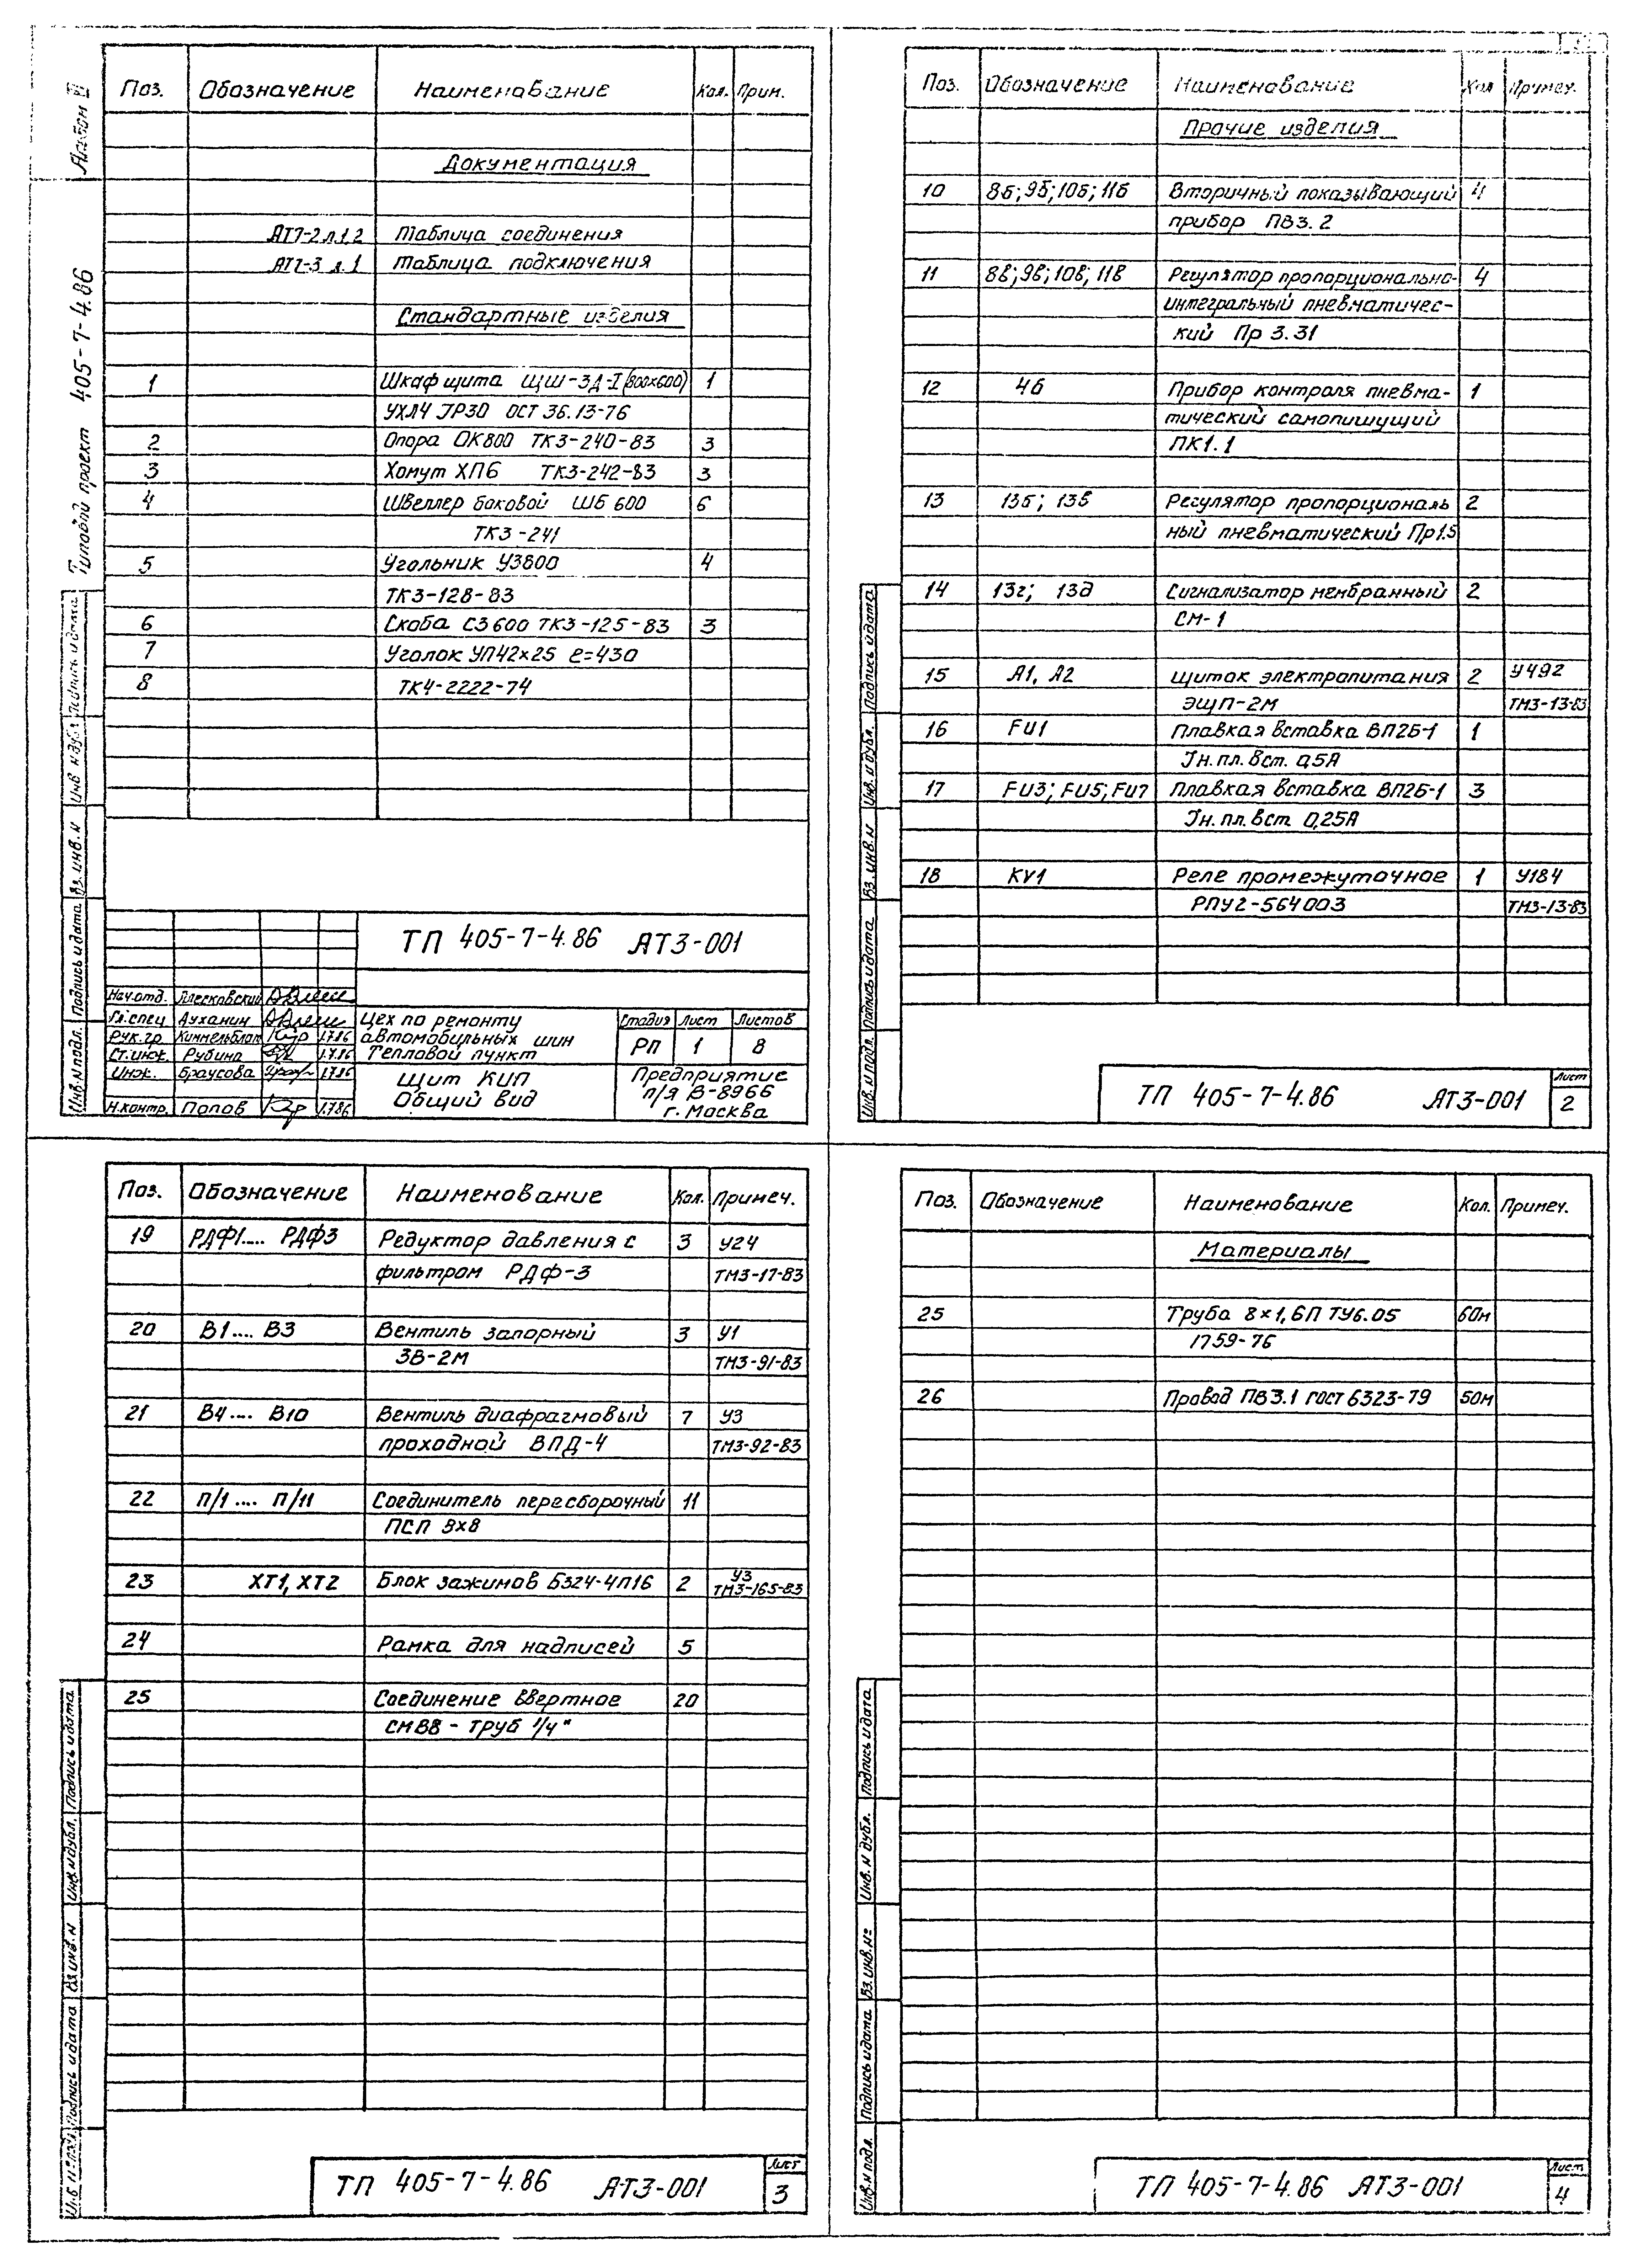 Альбом
Типовой проект 405-7-4.86
Поз. Обозначение Наименование Кол. Прим.
Документация
АТ7-2 л.1,2 Таблица соединения
АТ7-3 л.1 Таблица подключения
Стандартные изделия
1 Шкаф щита ЩШ-ЗД-I (800×600) 1
УХЛ4 IP30 ОСТ 36.13-76
2 Опора ОК800 ТК3-240-83 3
3 Хомут ХП6 ТК3-242-83 3
4 Швеллер боковой ШБ 600 6
ТК3-241
5 Угольник УЗ800 4
ТК3-128-83
6 Скоба СЗ600 ТК3-125-83 3
7 Уголок УП42×25 ℓ=430
8 ТК4-2222-74
Инв. N подл. Подпись и дата Вз. инв. N Инв. N дубл. Подпись и дата
ТП 405-7-4.86 АТ3-001
Нач.отд. Плесковский
Гл.спец Духанин
Рук.гр. Киммельблат 1.7.86
Ст.инж. Рубина 1.7.86
Инж. Браусова 1.7.86
Н.контр. Попов 1.7.86
Цех по ремонту
автомобильных шин
Тепловой пункт
Щит КИП
Общий вид
Стадия Лист Листов
РП 1 8
Предприятие
п/я В-8966
г. Москва
Поз. Обозначение Наименование Кол Примеч.
Прочие изделия
10 8б; 9б; 10б; 11б Вторичный показывающий 4
прибор ПВ3.2
11 8в; 9в; 10в; 11в Регулятор пропорционально- 4
интегральный пневматичес-
кий Пр 3.31
12 4б Прибор контроля пневма- 1
тический самопишущий
ПК1.1
13 13б; 13в Регулятор пропорциональ 2
ный пневматический Пр1.5
14 13г; 13д Сигнализатор мембранный 2
СМ-1
15 А1, А2 Щиток электропитания 2 У492
ЭЩП-2М ТМ3-13-83
16 FU1 Плавкая вставка ВП2Б-1 1
Iн. пл. вст. 0,5А
17 FU3; FU5; FU7 Плавкая вставка ВП2Б-1 3
Iн. пл. вст 0,25А
18 KV1 Реле промежуточное 1 У184
РПУ2-564003 ТМ3-13-83
Инв. N подл. Подпись и дата Вз. инв. N Инв. N дубл. Подпись и дата
ТП 405-7-4.86 АТ3-001 Лист
2
Поз. Обозначение Наименование Кол. Примеч.
19 РДФ1.... РДФ3 Редуктор давления с 3 У24
фильтром РДФ-3 ТМ3-17-83
20 В1.... В3 Вентиль запорный 3 У1
ЗВ-2М ТМ3-91-83
21 В4.... В10 Вентиль диафрагмовый 7 У3
проходной ВПД-4 ТМ3-92-83
22 П/1.... П/11 Соединитель пересборочный 11
ПСП 8×8
23 ХТ1, ХТ2 Блок зажимов БЗ24-4П16 2 У3
ТМ3-165-83
24 Рамка для надписей 5
25 Соединение ввертное 20
СМВ8 - труб 1/4"
Подпись и дата Вз. инв. N Инв. N дубл. Подпись и дата
ТП 405-7-4.86 АТ3-001 Лист
3
Поз. Обозначение Наименование Кол. Примеч.
Материалы
25 Труба 8×1,6П ТУ6.05 60м
1759-76
26 Провод ПВ3.1 ГОСТ 6323-79 50м
Инв. N подл. Подпись и дата Вз. инв. № Инв. N дубл. Подпись и дата
ТП 405-7-4.86 АТ3-001 Лист
4